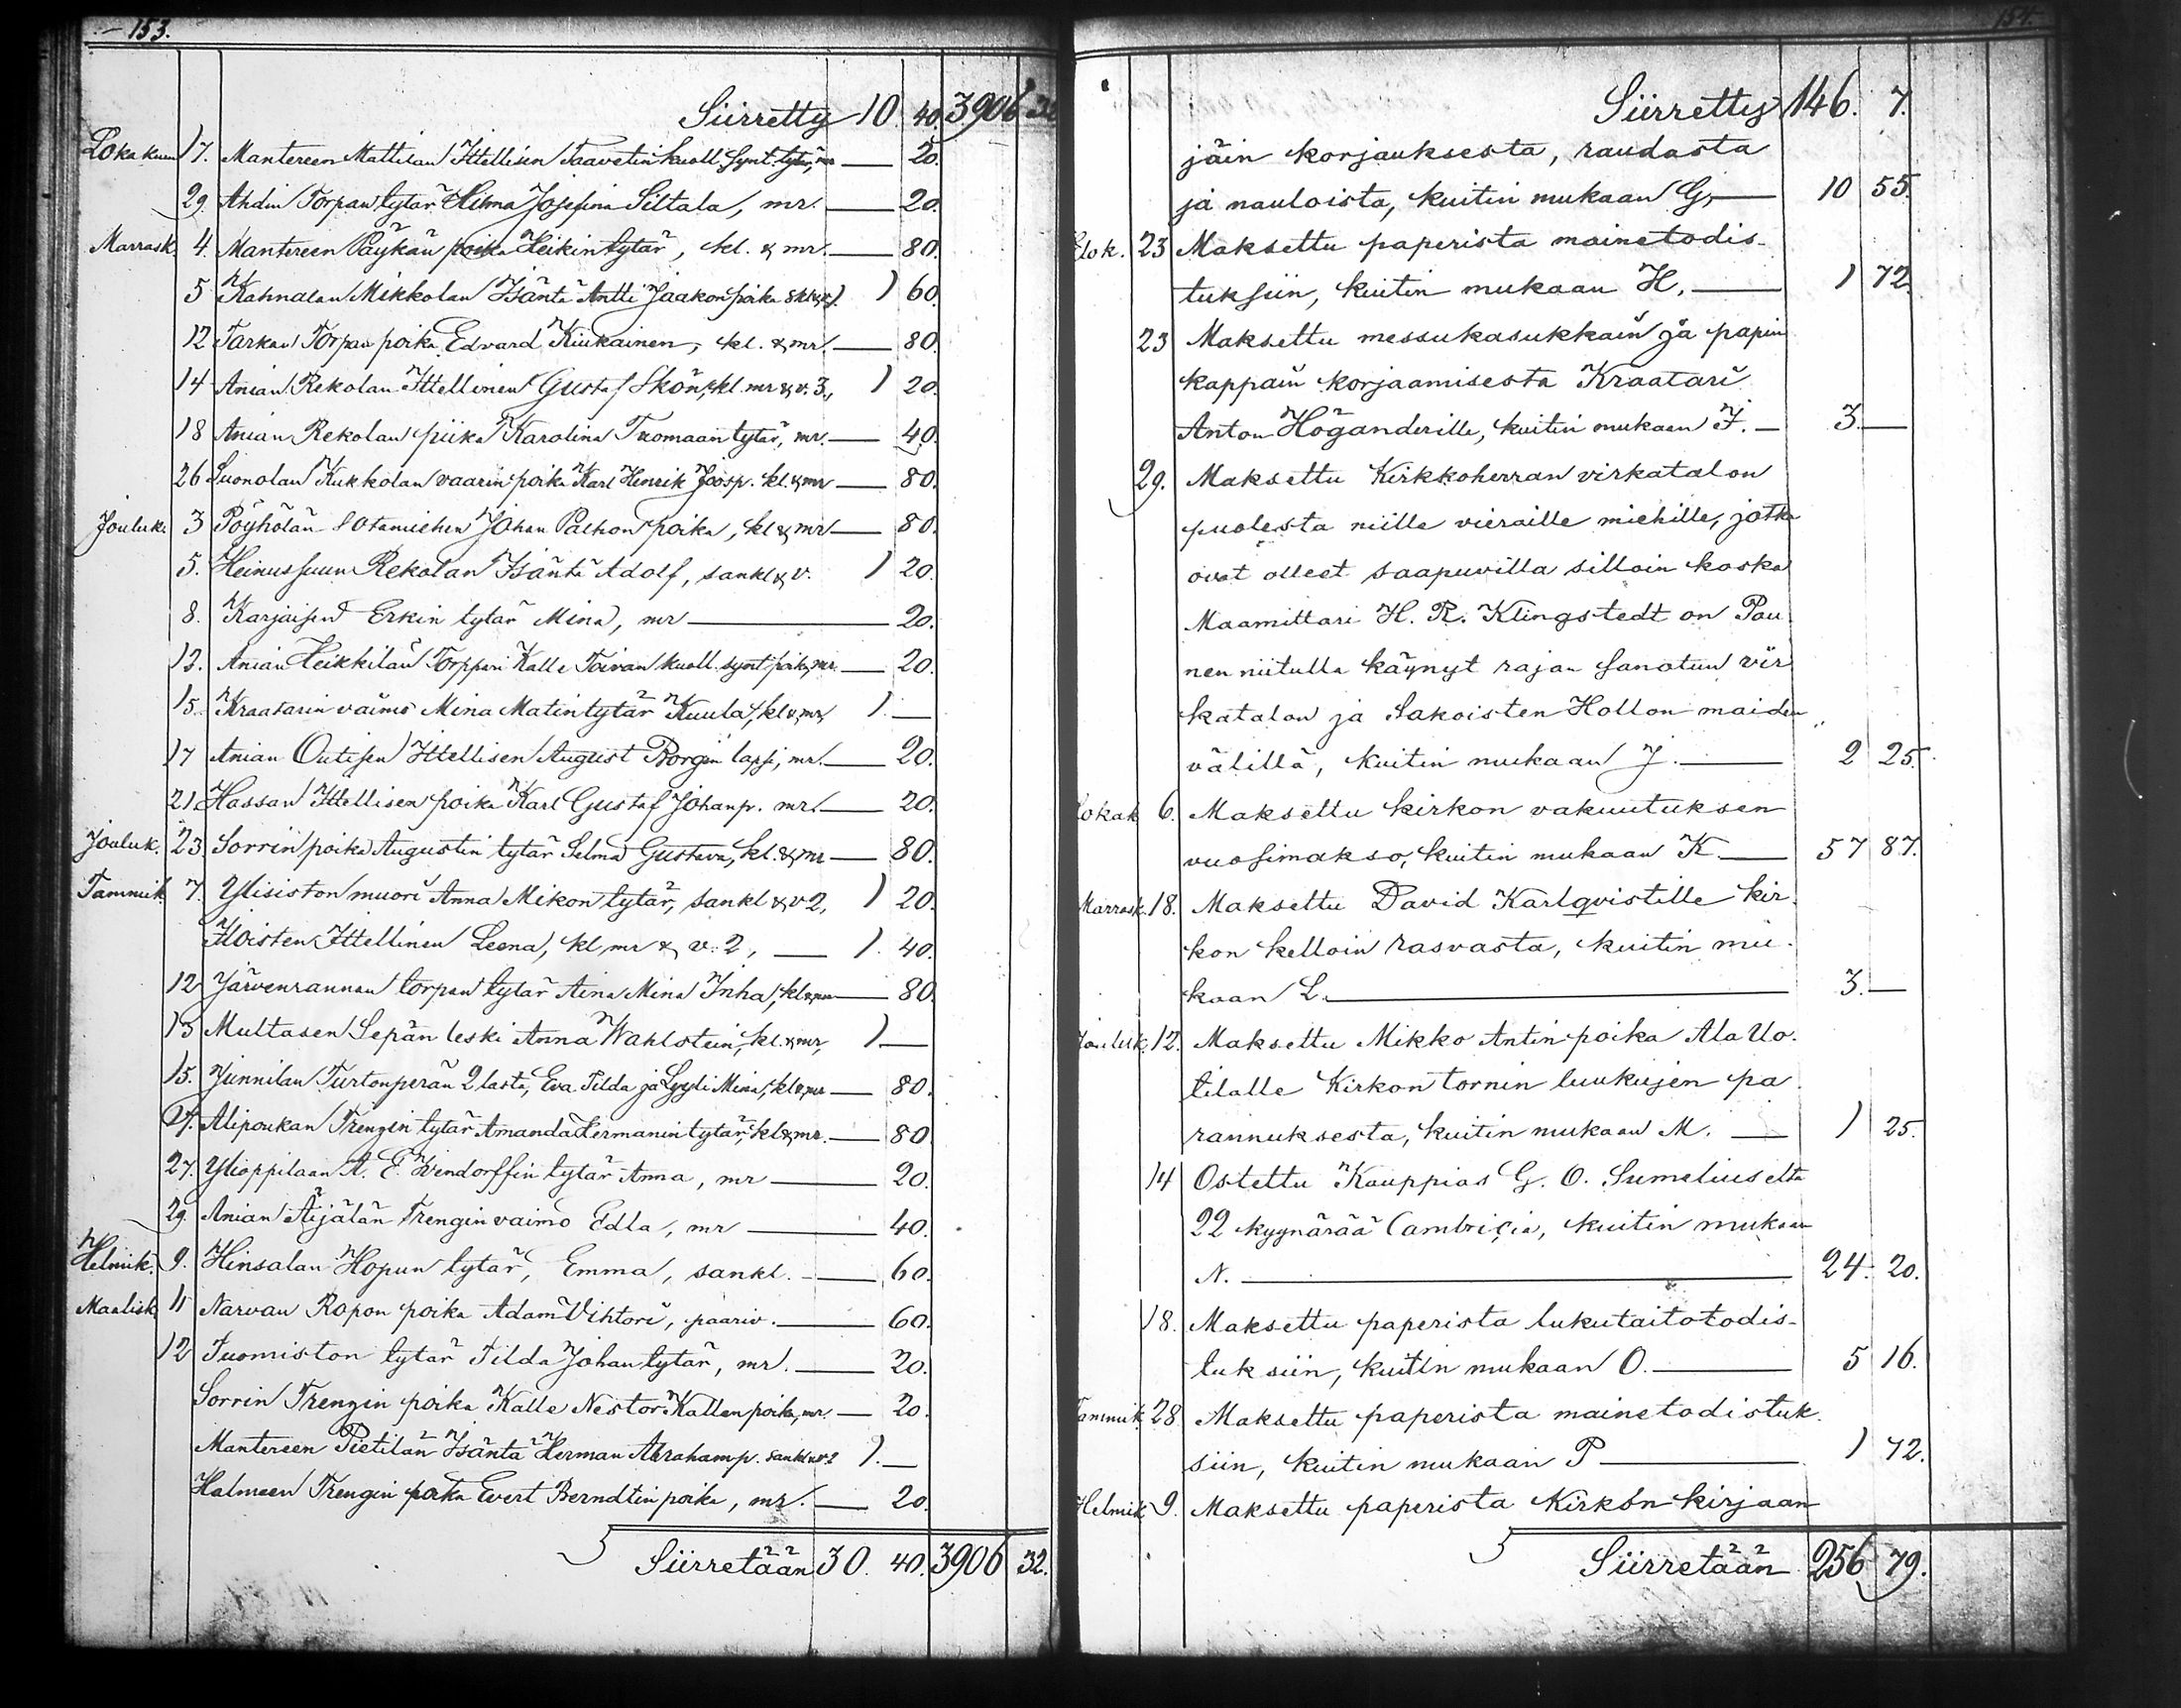 153.
Siirretty 10. 40. 3906
Lokakuu 17. Mantereen Mattilan Ittellisen Taavetin kuoll. synt. tytär, mr — 20.
29. Ahdin Torpan tytär Hilma Josefina Siltala, mr. — 20.
Marrask. 4. Mantereen Pöykän poika Heikin tytär, kl. & mr. — 80.
5 Kahnalan Mikkolan Isäntä Antti Jaakon poika 1 60.
12 Tarkan Torpan poika Edvard Kiukainen, kl. & mr. — 80.
14 Anian Rekolan Ittellinen Gustaf Skön, kl. mr & v. 3., 1 20.
18 Anian Rekolan piika Karolina Tuomaan tytär, mr. — 40.
26 Suonolan Kukkolan vaarin poika Karl Henrik Joosp. kl. & mr — 80.
Jouluk. 3 Pöyhölän Sotamiehen Johan Palhon poika, kl & mr — 80.
5. Heinussuun Rekolan Isäntä Adolf, sankl & v. 1 20.
8. Karjaisen Erkin tytär Mina, mr — 20.
12. Anian Heikkilän Torppari Kalle Toivan kuoll. synt. poika, mr. — 20.
15. Kraatarin vaimo Mina Matintytär Kuula, kl & mr, 1. —
17 Anian Outisen Ittellisen August Borgin lapsi, mr. — 20.
21 Hassan Ittellisen poika Karl Gustaf Johanp. mr. — 20.
Jouluk. 23 Sorrin poika Augustin tytär Selma Gustava, kl. & mr — 80.
Tammik. 7. Ylisiston muori Anna Mikon tytär, sankl & v 2, 1 20.
Iloisten Ittellinen Leena, kl, mr & v. 2, — 1. 40.
12 Järvenrannan torpan tytär Aina Mina Inha, kl & mr — 80.
13 Multasen Sepän leski Anna Wahlstein, kl. & mr, 1. —
15. Junnilan Turtonperän 2 lasta, Eva Tilda ja Lyyli Mina, kl & mr — 80.
Alipoukan Trengin tytär Amanda Hermanin tytär, kl & mr. — 80
27. Ylioppilaan A. E. Wendorffin tytär Anna, mr — 20.
29. Anian Äijälän Trengin vaimo Edla, mr — 40.
Helmik. 9. Hinsalan Hopun tytär, Emma, sankl. — 60.
Maalisk. 11 Narvan Ropon poika Adam Vihtori, paariv. — 60.
12 Tuomiston tytär Tilda Johan tytär, mr. — 20.
Sorrin Trengin poika Kalle Nestor Kallen poika, mr. — 20.
Mantereen Pietilän Isäntä Herman Abrahamp. sankl & v 2 1. —
Halmeen Trengin poika Evert Berndtin poika, mr. — 20.
Siirretään 30. 40. 3906 32.
154.
Siirretty 146. 7.
jäin korjauksesta, raudasta
ja nauloista, kuitin mukaan G, — 10 55.
Elok. 23 Maksettu paperista mainetodis-
tuksiin, kuitin mukaan H. — 1 72.
23 Maksettu messukasukkain ja papin
kappain korjaamisesta Kraatari
Anton Höganderille, kuitin mukaan I. — 3. —
29. Maksettu Kirkkoherran virkatalon
puolesta niille vieraille miehille, jotka
ovat olleet saapuvilla silloin koska
Maamittari H. R. Klingstedt on Pau
nen niitulla käynyt rajan sanotun vir
katalon ja Sakoisten Hollon maiden
välillä, kuitin mukaan J. — 2 25.
Lokak 6. Maksettu kirkon vakuutuksen
vuosimakso, kuitin mukaan K. — 57 87.
Marrask. 18. Maksettu David Karlqvistille kir.
kon kelloin rasvasta, kuitin mu.
kaan L. — 3. —
Jouluk. 12. Maksettu Mikko Antin poika Ala Uo.
tilalle Kirkon tornin luukujen pa.
rannuksesta, kuitin mukaan M. — 1 25.
14 Ostettu Kauppias G. O. Sumeliuselta
22 kyynärää Cambricia, kuitin mukaan
N. — 24. 20.
18. Maksettu paperista lukutaitotodis-
tuksiin, kuitin mukaan O. — 5 16.
Tammik 28 Maksettu paperista mainetodistuk.
siin, kuitin mukaan P — 1 72.
Helmik 9. Maksettu paperista Kirkon kirjaan
Siirretään 256 79.